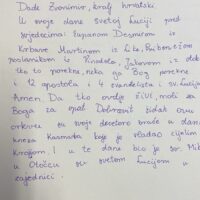 Dade Zvonimir, kralj hrvatski.
U svoje dane svetoj Luciji pred
svjedocima: županom Desimirom iz
Krbave Martinom iz Like,
poslanikom iz Vinodola, Jakovom iz otoka
tko to porekne, neka ga Bog porekne
i 12 apostola i 4 evanđelista i sv. Lucija
Amen. Da tko ovdje živi, moli za
Boga za njega. opat Dobrovit zidah ovu
crkvu sa svoje devetero braće u dane
kneza Kosmata koji je vladao cijelom
Krajinom. I u te dane bio je sv. Mikula
u Otočcu sa svetom Lucijom u
zajednici.